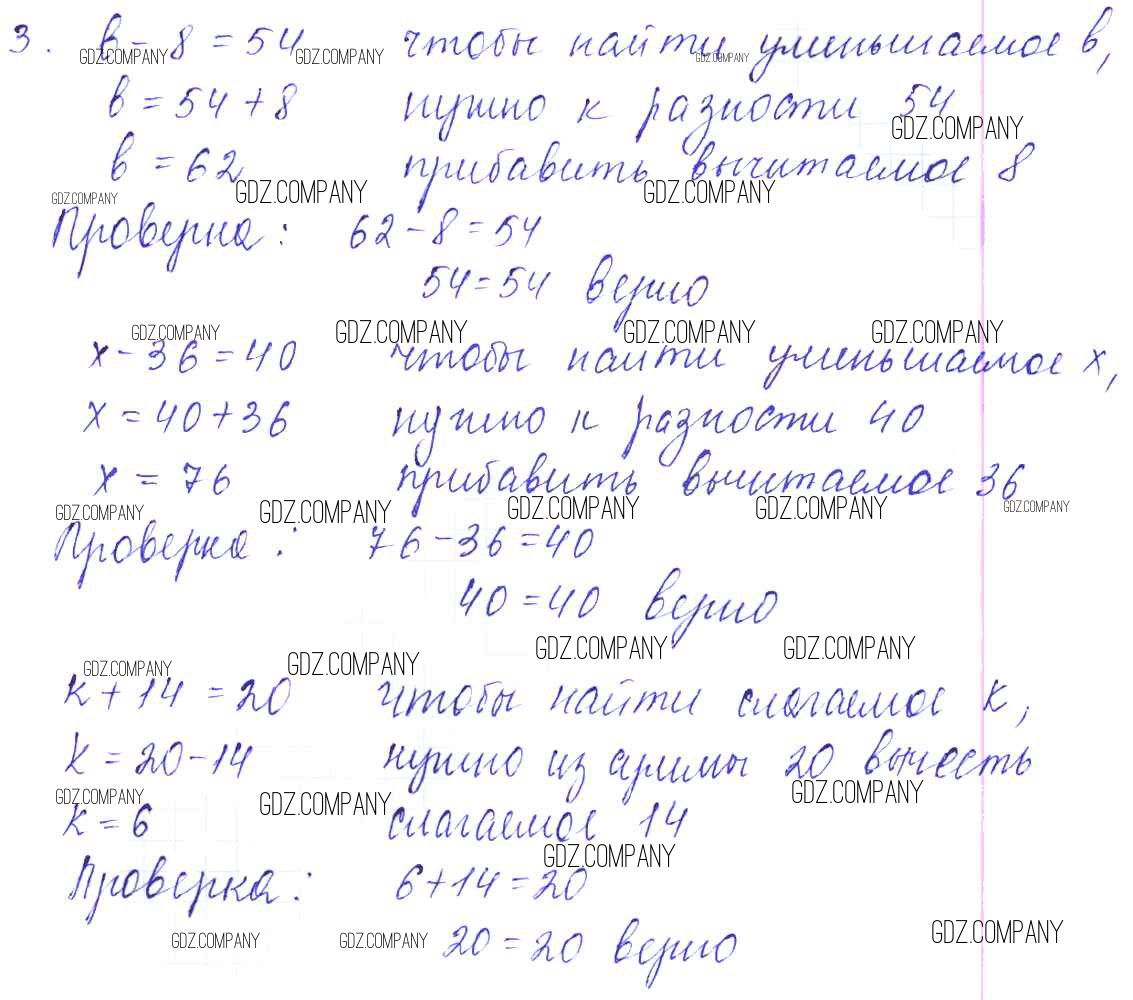 3. в - 8 = 54 чтобы найти уменьшаемое в,
GDZ.COMPANY GDZ.COMPANY GDZ.COMPANY
в = 54 + 8 нужно к разности 54
GDZ.COMPANY
в = 62 прибавить вычитаемое 8
GDZ.COMPANY GDZ.COMPANY GDZ.COMPANY
Проверка: 62 - 8 = 54
54 = 54 верно
GDZ.COMPANY GDZ.COMPANY GDZ.COMPANY GDZ.COMPANY
х - 36 = 40 чтобы найти уменьшаемое х,
х = 40 + 36 нужно к разности 40
х = 76 прибавить вычитаемое 36
GDZ.COMPANY GDZ.COMPANY GDZ.COMPANY GDZ.COMPANY GDZ.COMPANY
Проверка: 76 - 36 = 40
40 = 40 верно
GDZ.COMPANY GDZ.COMPANY GDZ.COMPANY GDZ.COMPANY
к + 14 = 20 чтобы найти слагаемое к,
к = 20 - 14 нужно из суммы 20 вычесть
GDZ.COMPANY GDZ.COMPANY GDZ.COMPANY
к = 6 слагаемое 14
GDZ.COMPANY
Проверка: 6 + 14 = 20
20 = 20 верно
GDZ.COMPANY GDZ.COMPANY GDZ.COMPANY